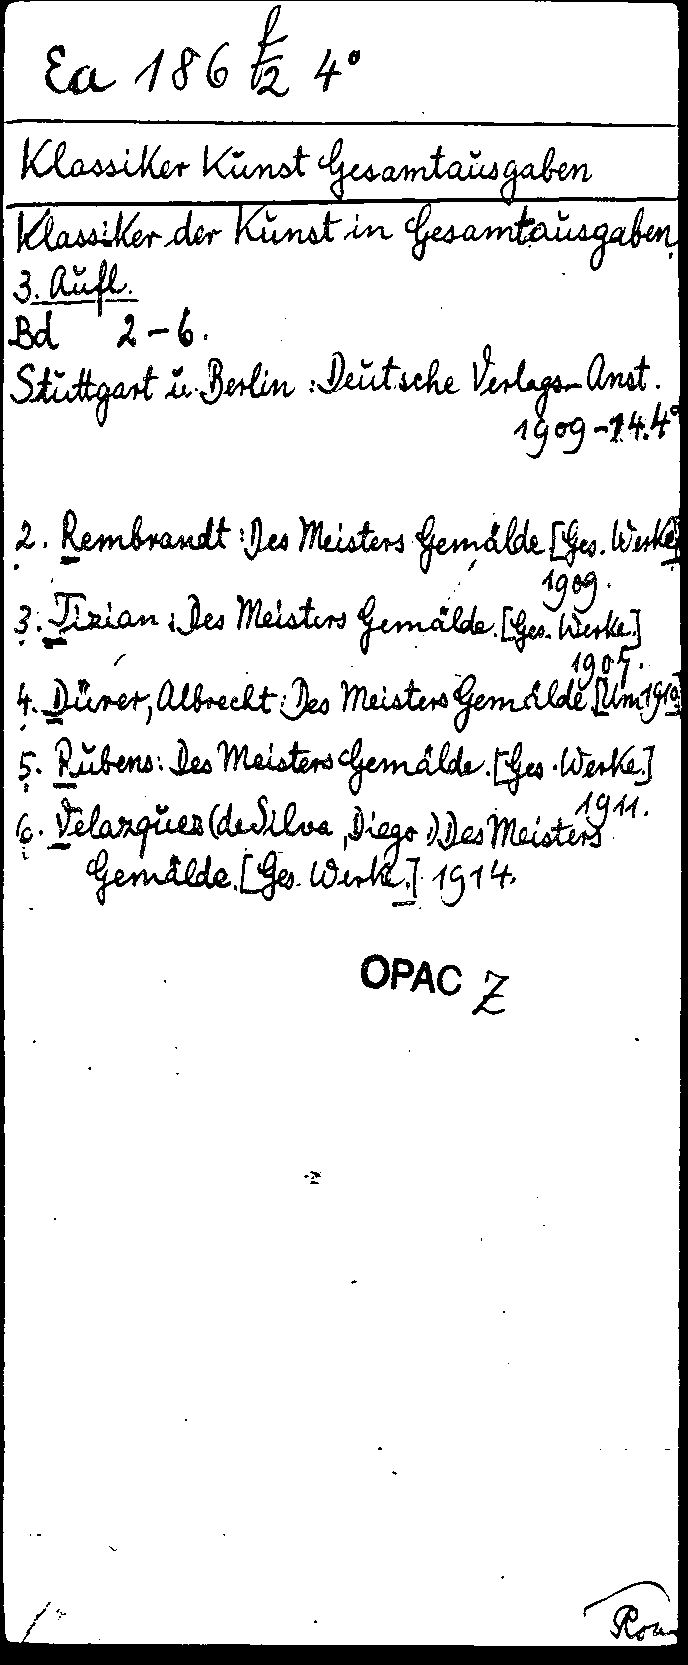 Ea 186 f/2 4°
Klassiker Kunst Gesamtausgaben
Klassiker der Kunst in Gesamtausgaben.
3. Aufl.
Bd 2-6.
Stuttgart u. Berlin: Deutsche Verlags-Anst.
1909-14. 4°
2. Rembrandt: Des Meisters Gemälde [Ges. Werke]
1909.
3. Tizian: Des Meisters Gemälde. [Ges. Werke.]
1907.
4. Dürer, Albrecht: Des Meisters Gemälde [Um 1910]
5. Rubens: Des Meisters Gemälde. [Ges. Werke.]
1911.
6. Velazquez (de Silva, Diego:) Des Meisters
Gemälde. [Ges. Werke.] 1914.
OPAC Z